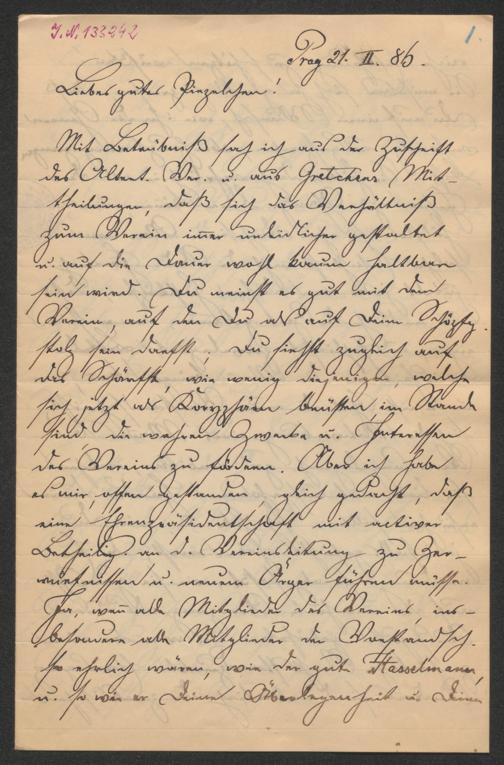 J. N. 133242
1.
Prag 21. II. 86.
Liebes gutes Pinzelchen!
Mit Betrübniß sah ich aus der Zuschrift
des Albert. Ver. u. aus Gretchens Mit-
theilungen, daß sich das Verhältniß
zum Verein immer unleidlicher gestaltet
u. auf die Dauer wohl kaum haltbar
sein wird. Du meinst es gut mit dem
Verein, auf den Du, als auf Deine Schöpfg.
stolz sein darfst, Du siehst zugleich auf
das Schärfste, wie wenig diejenigen, welche
sich jetzt als Koryphäen brüsten im Stande
sind, die wahren Zwecke u. Interessen
des Vereins zu fördern. Aber ich habe
es mir, offen gestanden, gleich gedacht, daß
eine Ehrenpräsidentschaft mit activer
Betheilig. an d. Vereinsleitung zu Zer-
würfnissen u. neuem Ärger führen müsse.
Ja, wenn alle Mitglieder des Vereins ins-
besondere alle Mitglieder der Vorstandsch.
so ehrlich wären, wie der gute Hasselmann,
u. so wie er Deine Überlegenheit u. Deine